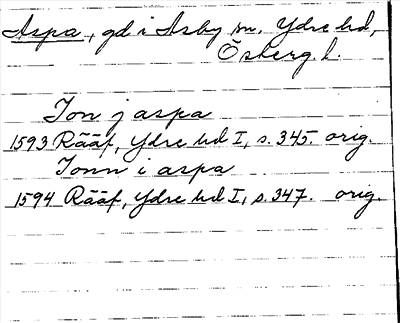 Aspa, gd i Asby sn, Ydre hd,
Österg. l.
Jon j aspa
1593 Rääf, Ydre hd I, s. 345. orig.
Jonn i aspa
1594 Rääf, Ydre hd I, s. 347. orig.